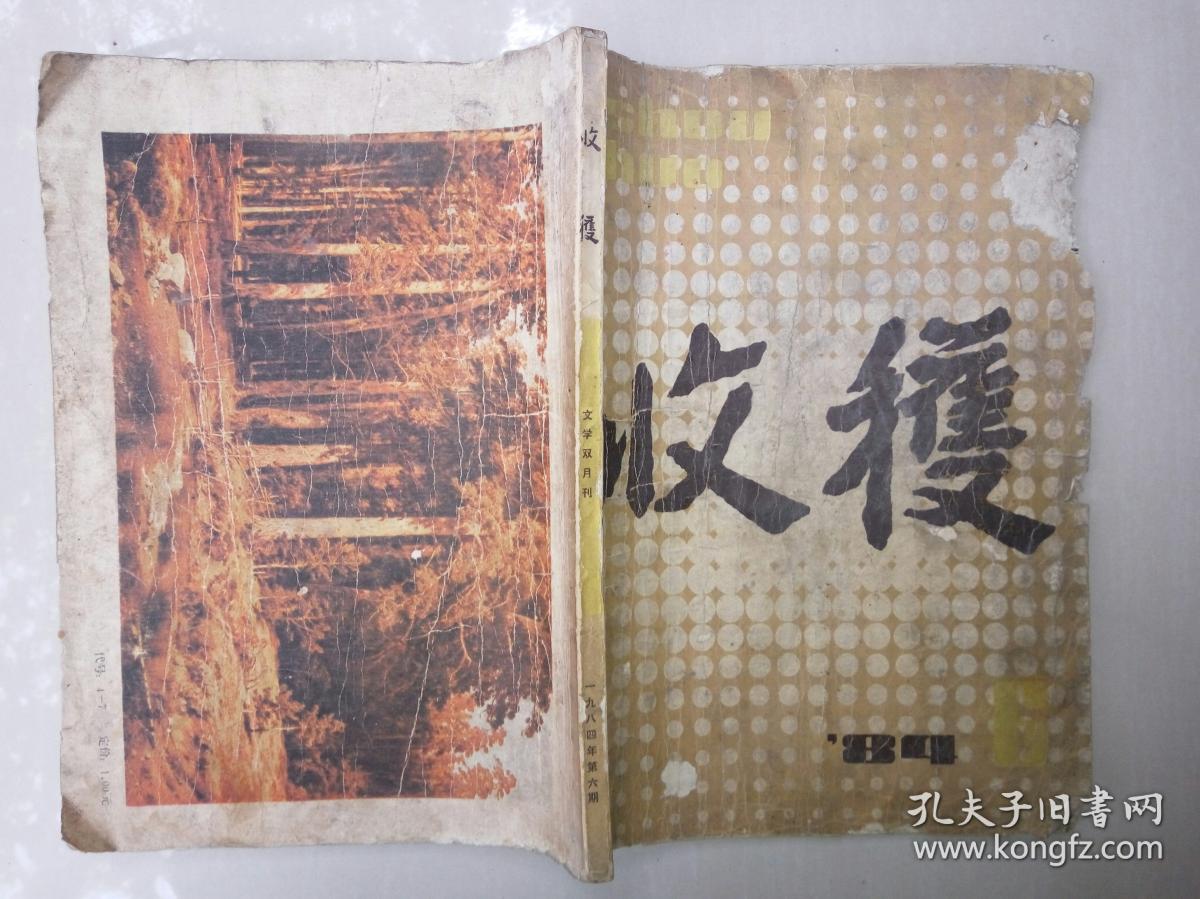 收穫
'84
6
收穫
文学双月刊
一九八四年第六期
代号：4—7 定价：1.00元
孔夫子旧書网
www.kongfz.com